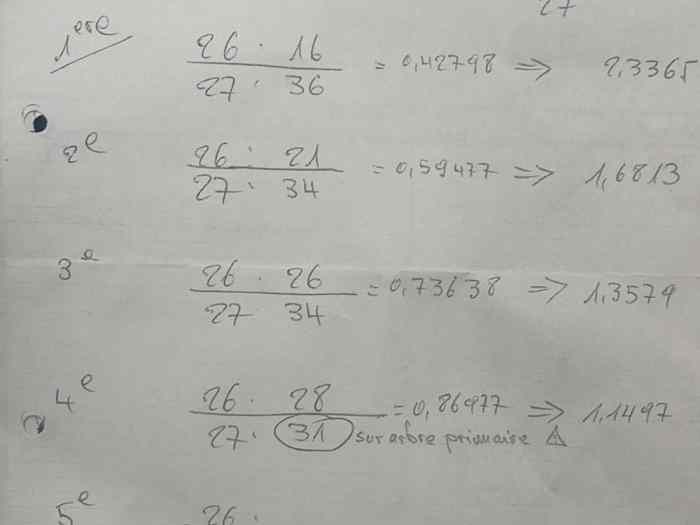 27
1ere 26 · 16 / 27 · 36 = 0,42798 => 2,3365
2e 26 · 21 / 27 · 34 = 0,59477 => 1,6813
3e 26 · 26 / 27 34 = 0,73638 => 1,3579
4e 26 · 28 / 27 · 31 = 0,86977 => 1,1497
sur arbre primaire ⚠
5e 26 ·